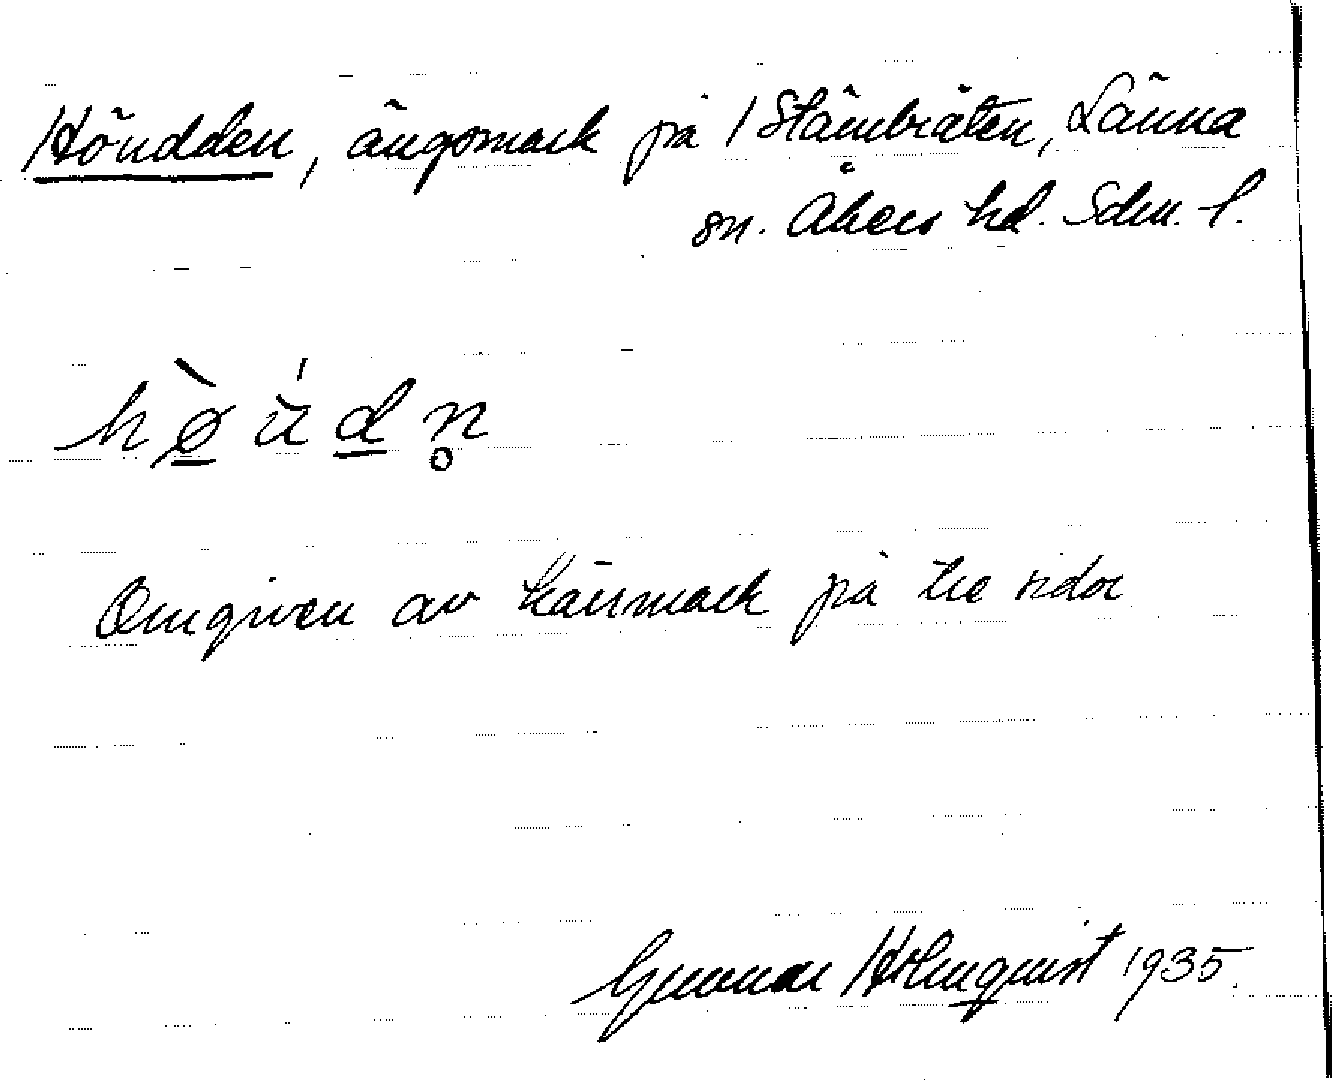 Höudden, ängsmark på Stämbråten, Länna
sn. Åkers hd. Sdm. l.
hø̀ŭ'dn̥
Omgiven av kärrmark på tre sidor
Gunnar Holmquist 1935.